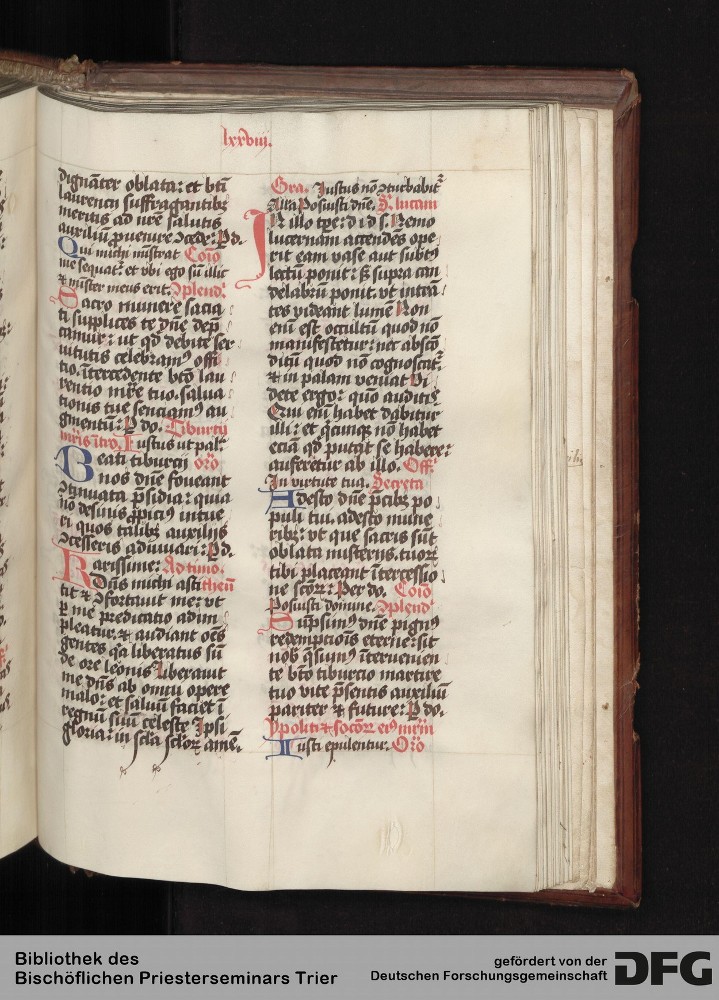 lxxviii.
dignāter oblata: et bti
laurencii suffragantibꝫ
meritis ad nr̄e salutis
auxiliū ꝓuenire ↄcede: Pd.
Qui michi mīstrat Coīo
me sequatᷣ: et vbi ego sū illic
⁊ mīster meus erit. ↄplend.
Sacro munere sacia
ti supplices te dn̄e dep̄
camur: ut qd debite ser
uitutis celebramꝰ offi
tio. ītercedente bt̄o lau
rentio mr̄e tuo. salua
tionis tue senciamꝰ au
gmentū: P do. Tiburtii
mr̄is ītro. Iustus ut pal.
Beati tiburcii or̄o
nos dn̄e foueant
ↄtinuata p̄sidia: quia
nō desinis ꝓpiciꝰ intue
ri quos talibꝫ auxiliis
ↄcesseris adiuuari: Pd.
Karissime: Ad timo.
Dn̄s michi asti theū
tit ⁊ ↄfortauit me: vt
ꝑ me predicatio adim
pleatur. ⁊ audiant oēs
gentes q̄a liberatus sū
de ore leonis Liberauit
me dn̄s ab omni opere
malo: et saluū faciet ī
regnū suū celeste Ipsi
gloria: in scl̄a scl̄oꝝ amē.
Gra. Iustus nō ↄturbabitᷣ
Alla Posuisti dn̄e. S. lucam
IN illo tꝑe: d i d s. Nemo
lucernam accendēs ope
rit eam vase aut subtꝰ
lectū ponit: sꝫ supra can
delabrū ponit. vt intrā
tes videant lumē Non
enī est occultū quod nō
manifestetur: nec absco
ditū quod nō cognoscatᷣ.
⁊ in palam veniat Vi
dete ergo: quo auditis
Qui enī habet dabitur
illi: et q̄cūqꝫ nō habet
eciā qd putat se habere:
auferetur ab illo. Off.
In virtute tua. Secreta
Adesto dn̄e p̄cibꝫ po
puli tui. adesto mune
ribꝫ: vt que sacris sūt
oblata misteriis. tuoꝝ
tibi placeant ītercessio
ne scōꝝ: Per do. Coīo
Posuisti domine. ↄplend
Sūpsimꝰ dn̄e pignꝰ
redemptiois eterne: sit
nob q̄simꝰ īteruenien
te bt̄o tiburcio martire
tuo vite p̄sentis auxiliū
pariter ⁊ future: P do.
Ypoliti ⁊ socioꝝ eiꝰ mr̄im
Iusti epulentur. Or̄o
Bibliothek des
Bischöflichen Priesterseminars Trier
gefördert von der
Deutschen Forschungsgemeinschaft
DFG